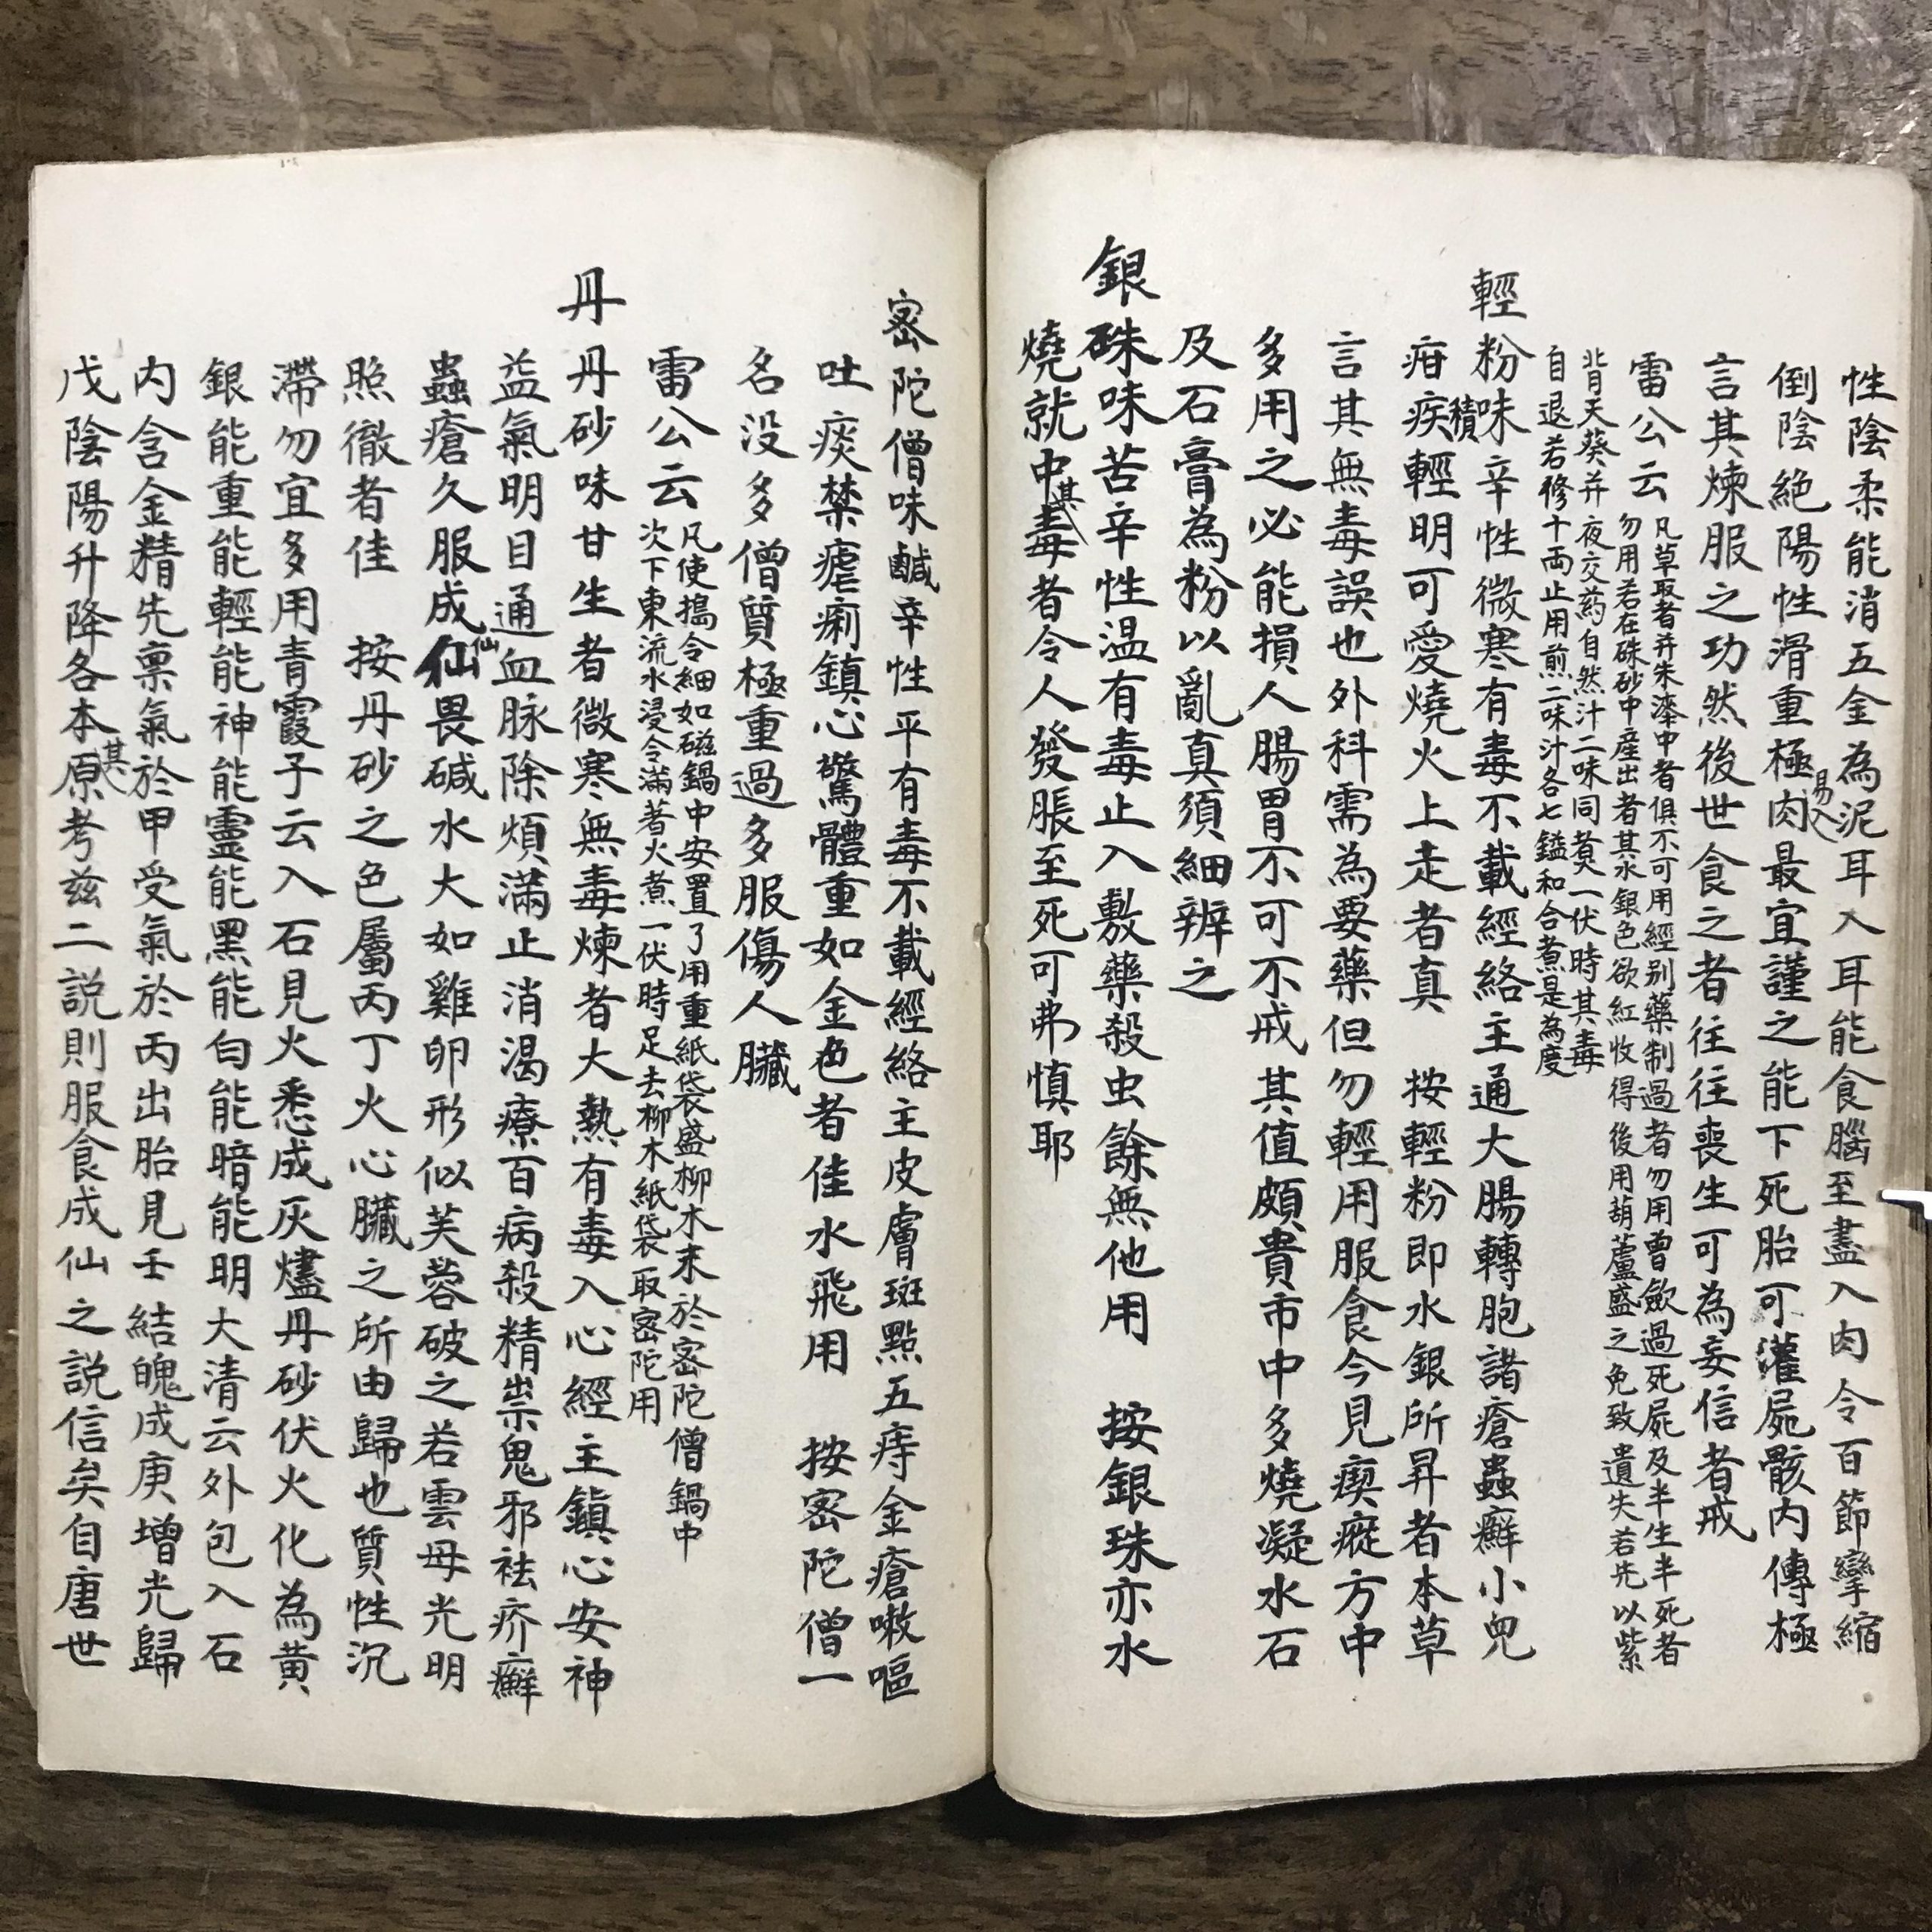 性陰柔能消五金為泥耳入耳能食腦至盡入肉令百節攣縮
倒陰絕陽性滑重極易入肉最宜謹之能下死胎可灌屍骸內傳極
言其煉服之功然後世食之者往往喪生可為妄信者戒
雷公云
凡草取者并朱漆中者俱不可用經別藥制過者勿用曾斂過死屍及半生半死者
勿用若在硃砂中産出者其水銀色欲紅收得後用葫蘆盛之免致遺失若先以紫
背天葵并夜交葯自然汁二味同煑一伏時其毒
自退若修十両止用煎二味汁各七鎰和合煮是為度
輕粉味辛性微寒有毒不載經絡主通大腸轉胞諸瘡蟲癬小兒
疳積疾輕明可愛燒火上走者真　按輕粉即水銀所昇者本草
言其無毒誤也外科需為要藥但勿輕用服食今見瘈瘲方中
多用之必能損人腸胃不可不戒其值頗貴市中多燒凝水石
及石膏為粉以亂真須細辨之
銀硃味苦辛性温有毒止入敷藥殺虫餘無他用　按銀珠亦水
燒就中其毒者令人發脹至死可弗慎耶
密陀僧味鹹辛性平有毒不載經絡主皮膚斑點五痔金瘡嗽嘔
吐痰禁瘧痢鎮心驚體重如金色者佳水飛用　按密陀僧一
名没多僧質極重過多服傷人臟
雷公云
凡使搗令細如磁鍋中安置了用重紙袋盛柳木末於密陀僧鍋中
次下東流水浸令滿著火煮一伏時足去柳木紙袋取密陀用
丹丹砂味甘生者微寒無毒煉者大熱有毒入心經主鎮心安神
益氣明目通血脉除煩滿止消渴療百病殺精祟鬼邪祛疥癬
蟲瘡久服成仙仙畏碱水大如雞卵形似芙蓉破之若雲母光明
照徹者佳　按丹砂之色屬丙丁火心臟之所由歸也質性沉
滯勿宜多用青霞子云入石見火悉成灰燼丹砂伏火化為黄
銀能重能輕能神能靈能黑能白能暗能明大清云外包入石
内含金精先禀氣於甲受氣於丙出胎見壬結魄成庚增光歸
戊陰陽升降各本其原考兹二説則服食成仙之説信矣自唐世